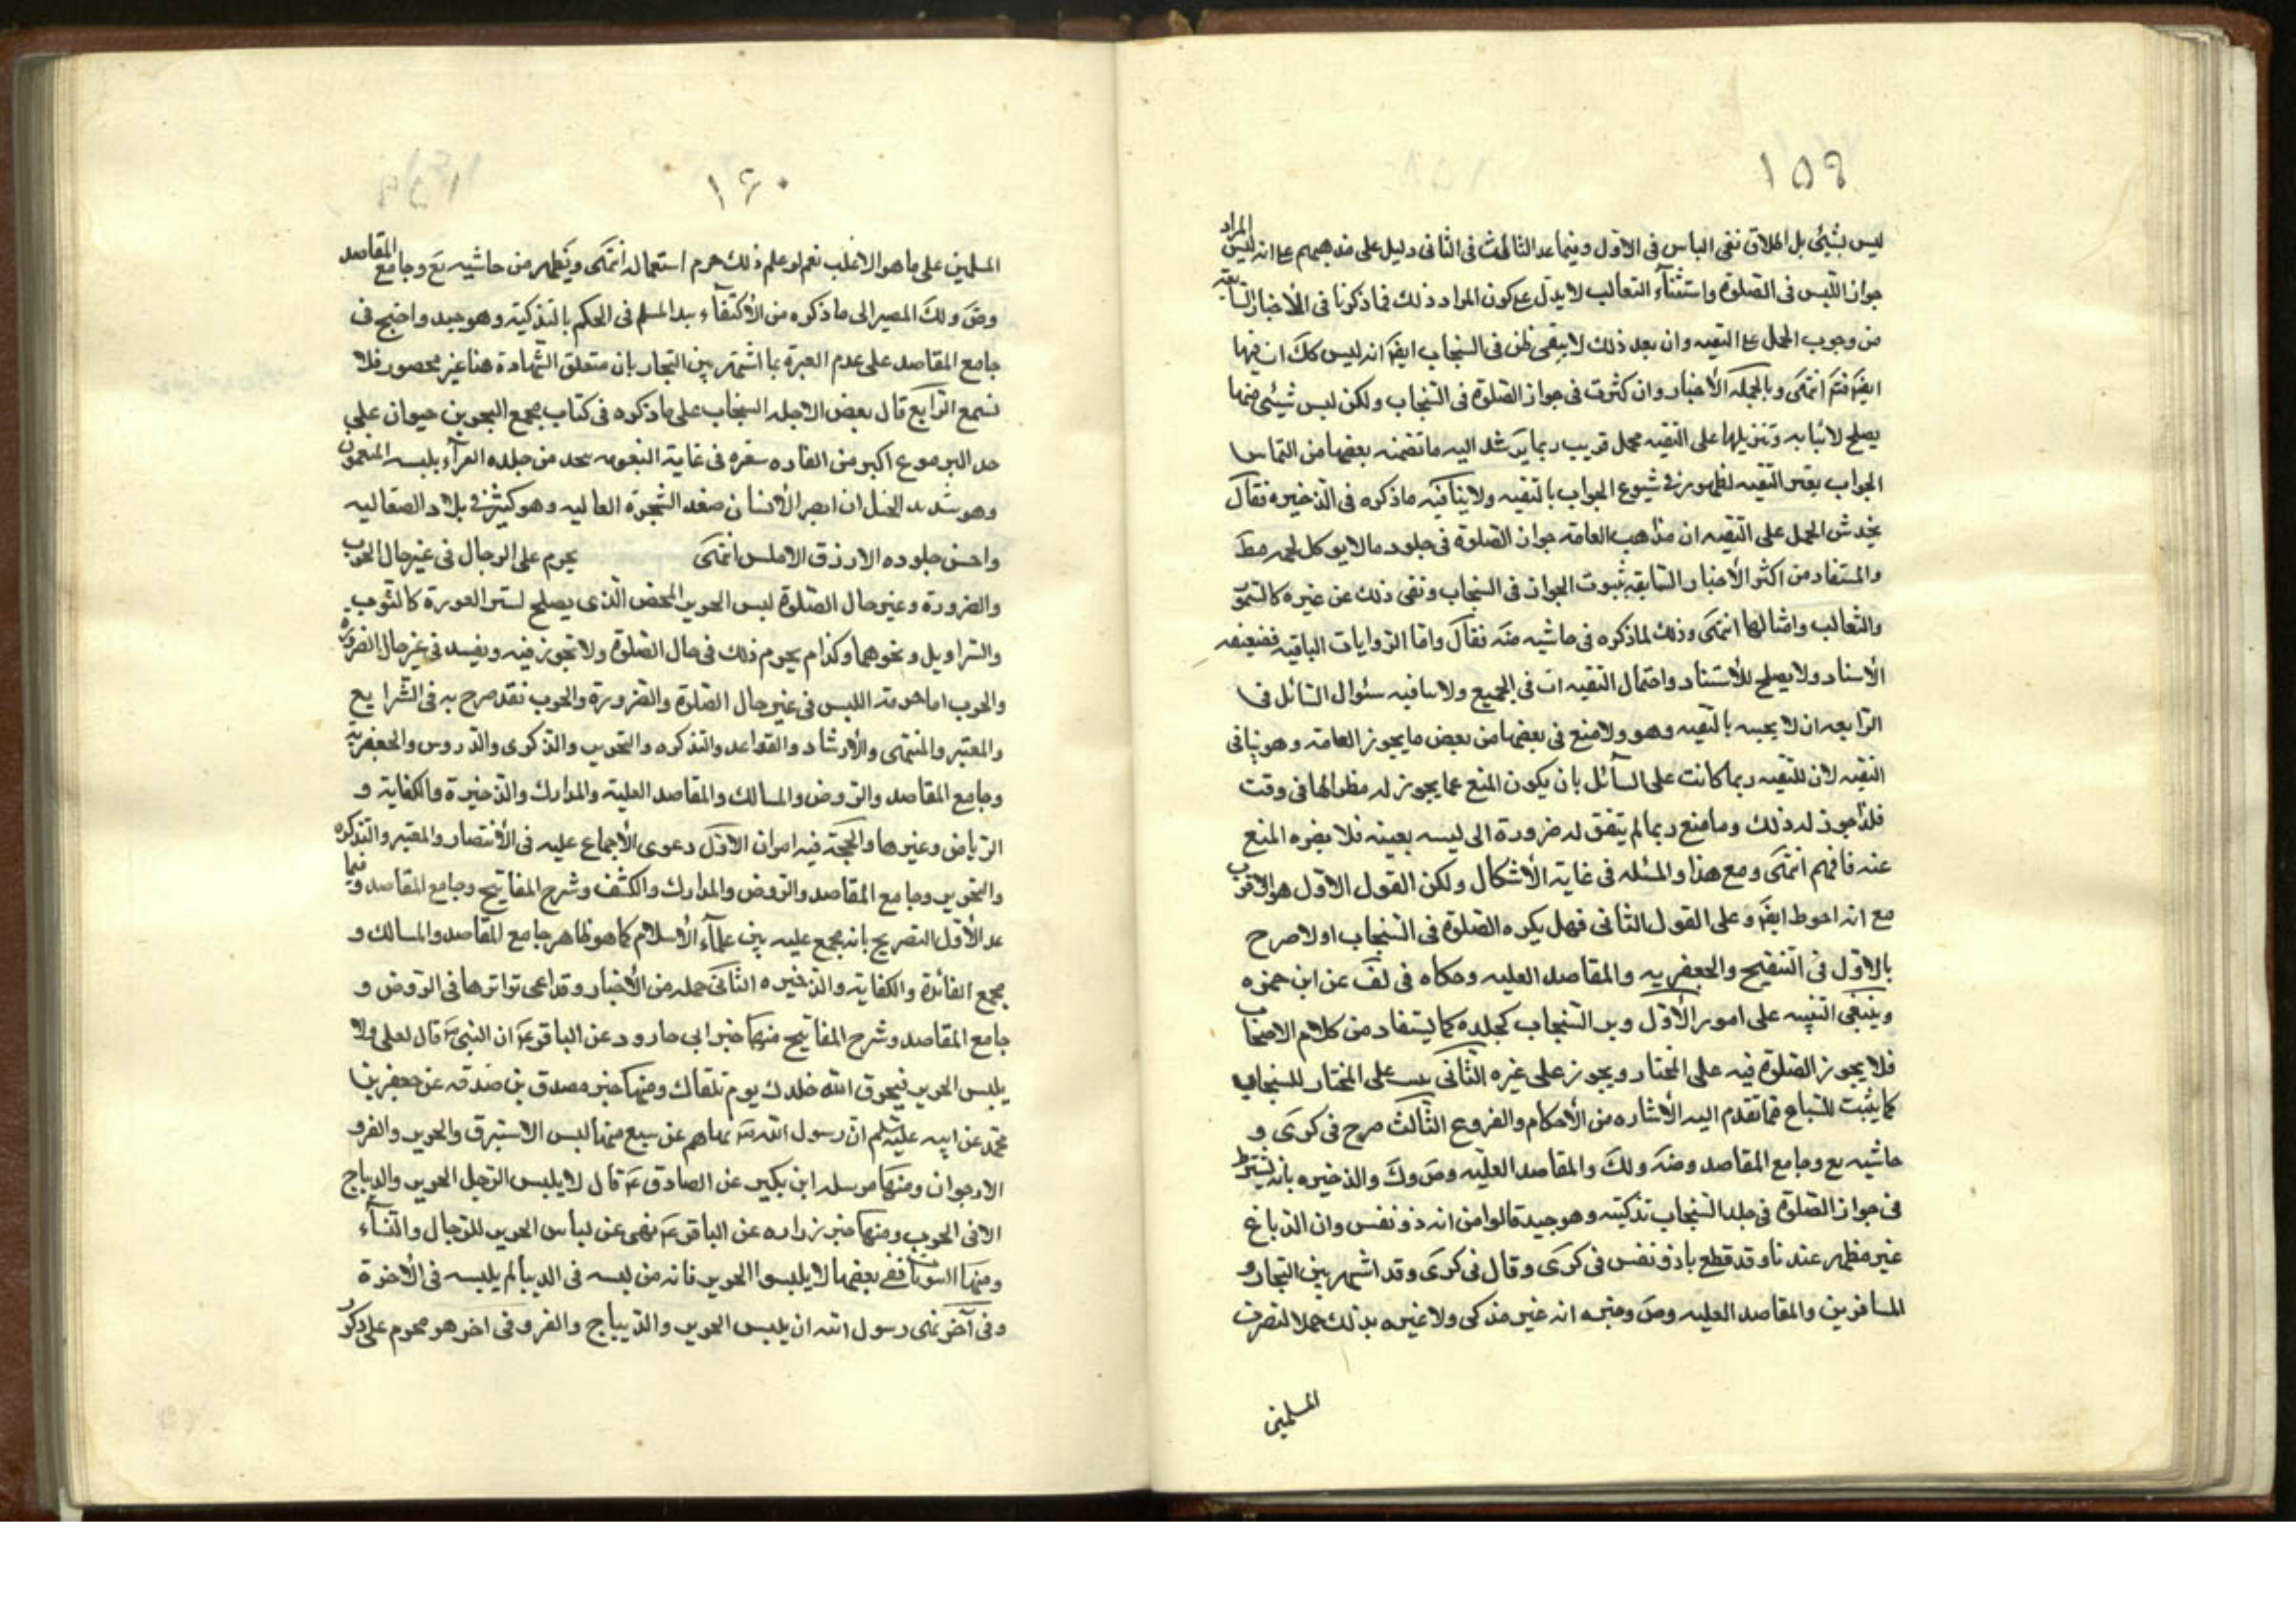 ١٥٩
ليس بشيئ بل اطلاق نفى الباس فى الاول وفيما عد الثالث فى الثانى دليل على مذهبهم مع انه ليس المراد
جواز اللبس فى الصلوة واستثناء الثعالب لا يدل على كون المراد ذلك فما ذكرنا فى الأخبار السابقة
من وجوب الحمل على التقيه وان بعد ذلك لا يبقى ظن فى السنجاب ايضا انه ليس كك ان فيها
ايضا فتم انتهى وبالجمله الأخبار وان كثرت فى جواز الصلوة فى السنجاب ولكن ليس شيئى منها
يصلح لاثباته وتنزيلها على التقيه محمل قريب ربما يرشد اليه ما تضمنه بعضها من التماس
الجواب بغير التقيه لظهوره فى شيوع الجواب بالتقيه ولا ينافيه ماذكره فى الذخيره فقال
يخدش الحمل على التقيه ان مذهب العامه جواز الصلوة فى جلود مالا يوكل لحمه مط
والمستفاد من اكثر الأخبار السابقه ثبوت الجواز فى السنجاب ونفى ذلك عن غيره كالسمور
والثعالب وامثالها انتهى وذلك لماذكره فى حاشيه منه فقال واما الروايات الباقيه فضعيفه
الأسناد ولا يصلح للأستناد واحتمال التقيه ات فى الجميع ولا ينافيه سئوال السائل فى
الرابعه ان لا يجيبه بالتقيه وهو ولا منع فى بعضها من بعض مايجوز العامه وهو ينافى
التقيه لان للتقيه ربما كانت على السائل بان يكون المنع عما يجوز له مظوالها فى وقت
فلذا جوز له ذلك وما منع ربما لم يتفق له ضرورة الى لبسه بعينه فلا يضره المنع
عنه فافهم انتهى ومع هذا والمسئله فى غاية الأشكال ولكن القول الاول هو الاقرب
مع انه احوط ايضا وعلى القول الثانى فهل يكره الصلوة فى السنجاب او لا صرح
بالاول فى التنقيح والجعفريه والمقاصد العليه وحكاه فى لف عن ابن حمزه
وينبغى التنبيه على امور الأول وبر السنجاب كجلده كما يستفاد من كلام الاصحاب
فلا يجوز الصلوة فيه على المختار ويجوز على غيره الثانى يثبت على المختار للسنجاب
كما يثبت للسباع مما تقدم اليه الأشاره من الأحكام والفروع الثالث صرح فى كرى و
حاشيه يع وجامع المقاصد وضه ولك والمقاصد العليه وض وك والذخيره بانه يشترط
فى جواز الصلوة فى جلد السنجاب تذكيته وهو جيد قالوا من انه ذو نفس وان الدباغ
غير مطهر عندنا وقد قطع بانه ذو نفس فى كرى وقال فى كرى وقد اشتهر بين التجار و
المسافرين والمقاصد العليه وض وغيره انه غير مذكى ولا عبره بذلك حملا لتصرف
المسلمين
١٦٠
المسلمين على ما هو الاغلب نعم لو علم ذلك حرم استعماله انتهى ويظهر من حاشيه يع وجامع المقاصد
وض ولك المصير الى ما ذكره من الأكتفاء بيد المسلم فى الحكم بالتذكية وهو جيد واحتج فى
جامع المقاصد على عدم العبرة بما اشتهر بين التجار بان متعلق الشهادة هنا غير محصور فلا
تسمع الرابع قال بعض الاجله السنجاب على ما ذكره فى كتاب مجمع البحرين حيوان على
حد اليربوع اكبر من الفاره شعره فى غاية النعومه يتخذ من جلده الفرآء يلبسه المتنعمون
وهو شديد الختل ان ابصر الأنسان صعد الشجرة العاليه وهو كثير فى بلاد الصقاليه
واحسن جلوده الازرق الاملس انتهى يحرم على الرجال فى غير حال الحرب
والضرورة وغير حال الصلوة لبس الحرير المحض الذى يصلح لستر العورة كالثوب
والسراويل ونحوهما وكذا يحرم ذلك فى حال الصلوة ولا تجوز فيه ويفسد فى غير حال الضرورة
والحرب اما حرمة اللبس فى غير حال الصلوة والضرورة والحرب فقد صرح به فى الشرايع
والمعتبر والمنتهى والأرشاد والقواعد والتذكره والتحرير والذكرى والدروس والجعفرية
وجامع المقاصد والروض والمسالك والمقاصد العلية والمدارك والذخيرة والكفاية و
الرياض وغيرها والحجة فيه امران الاول دعوى الأجماع عليه فى الأنتصار والمعتبر والتذكره
والتحرير وجامع المقاصد والروض والمدارك والكشف وشرح المفاتيح وجامع المقاصد وفيما
عد الأول التصريح بانه مجمع عليه بين علمآء الأسلام كما هو ظاهر جامع المقاصد والمسالك و
مجمع الفائدة والكفاية والذخيره الثانى جمله من الأخبار وقد ادعى تواترها فى الروض و
جامع المقاصد وشرح المفاتيح منها خبر ابى جارود عن الباقر ع ان النبى ص قال لعلى ولا
يلبس الحرير فيحرق الله جلدك يوم تلقاك ومنها خبر مصدق بن صدقه عن جعفر بن
محمد عن ابيه عليه السلم ان رسول الله ص نهاهم عن سبع منها لبس الاستبرق والحرير والقز و
الارجوان ومنها مرسله ابن بكير عن الصادق ع قال لا يلبس الرجل الحرير والديباج
الا فى الحرب ومنها خبر زراره عن الباقر ع نهى عن لباس الحرير للرجال والنسآء
ومنها النبويات ففى بعضها لا يلبسوا الحرير فانه من لبسه فى الدنيا لم يلبسه فى الأخرة
وفى آخر نهى رسول الله ان يلبس الحرير والديباج والقز وفى اخر هو محرم على ذكور